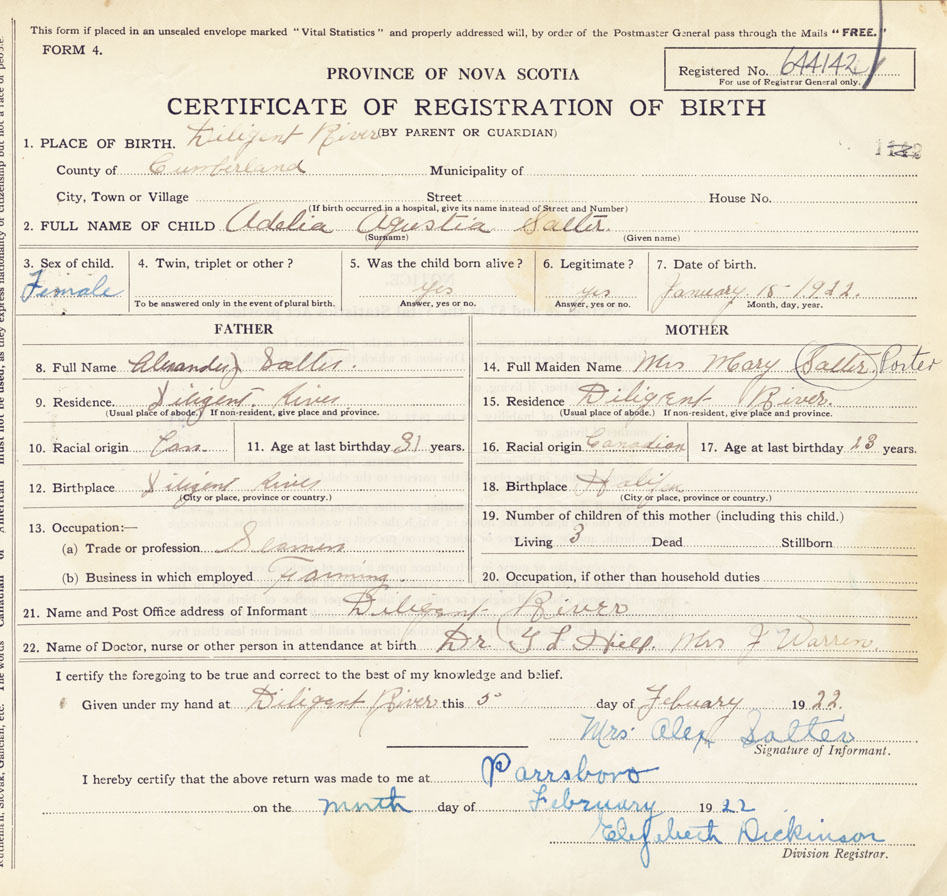 This form if placed in an unsealed envelope marked "Vital Statistics" and properly addressed will, by order of the Postmaster General pass through the Mails "FREE."
FORM 4.
PROVINCE OF NOVA SCOTIA
Registered No. 644142
For use of Registrar General only.
CERTIFICATE OF REGISTRATION OF BIRTH
(BY PARENT OR GUARDIAN)
1. PLACE OF BIRTH. Diligent River
County of Cumberland Municipality of
City, Town or Village Street House No.
(If birth occurred in a hospital, give its name instead of Street and Number)
2. FULL NAME OF CHILD Adelia Agustia Salter.
(Surname) (Given name)
3. Sex of child. 4. Twin, triplet or other? 5. Was the child born alive? 6. Legitimate? 7. Date of birth.
Female yes yes January 15 - 1922.
To be answered only in the event of plural birth. Answer, yes or no. Answer, yes or no. Month, day, year.
FATHER MOTHER
8. Full Name Alexander Salter. 14. Full Maiden Name Mrs Mary Salter Porter
9. Residence. Diligent River 15. Residence Diligent River.
(Usual place of abode.) If non-resident, give place and province. (Usual place of abode.) If non-resident, give place and province.
10. Racial origin Can. 11. Age at last birthday 31 years. 16. Racial origin Canadian 17. Age at last birthday 23 years.
12. Birthplace Diligent River 18. Birthplace Halifax
(City or place, province or country.) (City or place, province or country.)
13. Occupation:— 19. Number of children of this mother (including this child.)
(a) Trade or profession Living 3 Dead Stillborn
(b) Business in which employed Farming. 20. Occupation, if other than household duties
21. Name and Post Office address of Informant Diligent River
22. Name of Doctor, nurse or other person in attendance at birth Dr. Hill. Mrs J Warren.
I certify the foregoing to be true and correct to the best of my knowledge and belief.
Given under my hand at Diligent River this 5 day of February 1922.
Mrs. Alex Salter
Signature of Informant.
I hereby certify that the above return was made to me at Parrsboro
on the day of February 1922
Elizabeth Dickinson
Division Registrar.